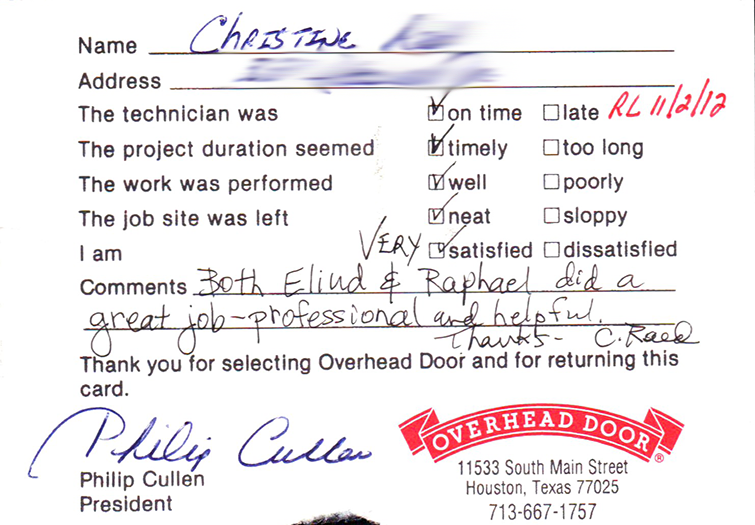 Name Christine
Address
The technician was ☑ on time ☐ late RL 11/2/12
The project duration seemed ☑ timely ☐ too long
The work was performed ☑ well ☐ poorly
The job site was left ☑ neat ☐ sloppy
I am Very ☑ satisfied ☐ dissatisfied
Comments Both Eliud & Raphael did a
great job-professional and helpful.
Thanks- C. Raed
Thank you for selecting Overhead Door and for returning this
card.
Philip Cullen
Philip Cullen
President
OVERHEAD DOOR®
11533 South Main Street
Houston, Texas 77025
713-667-1757